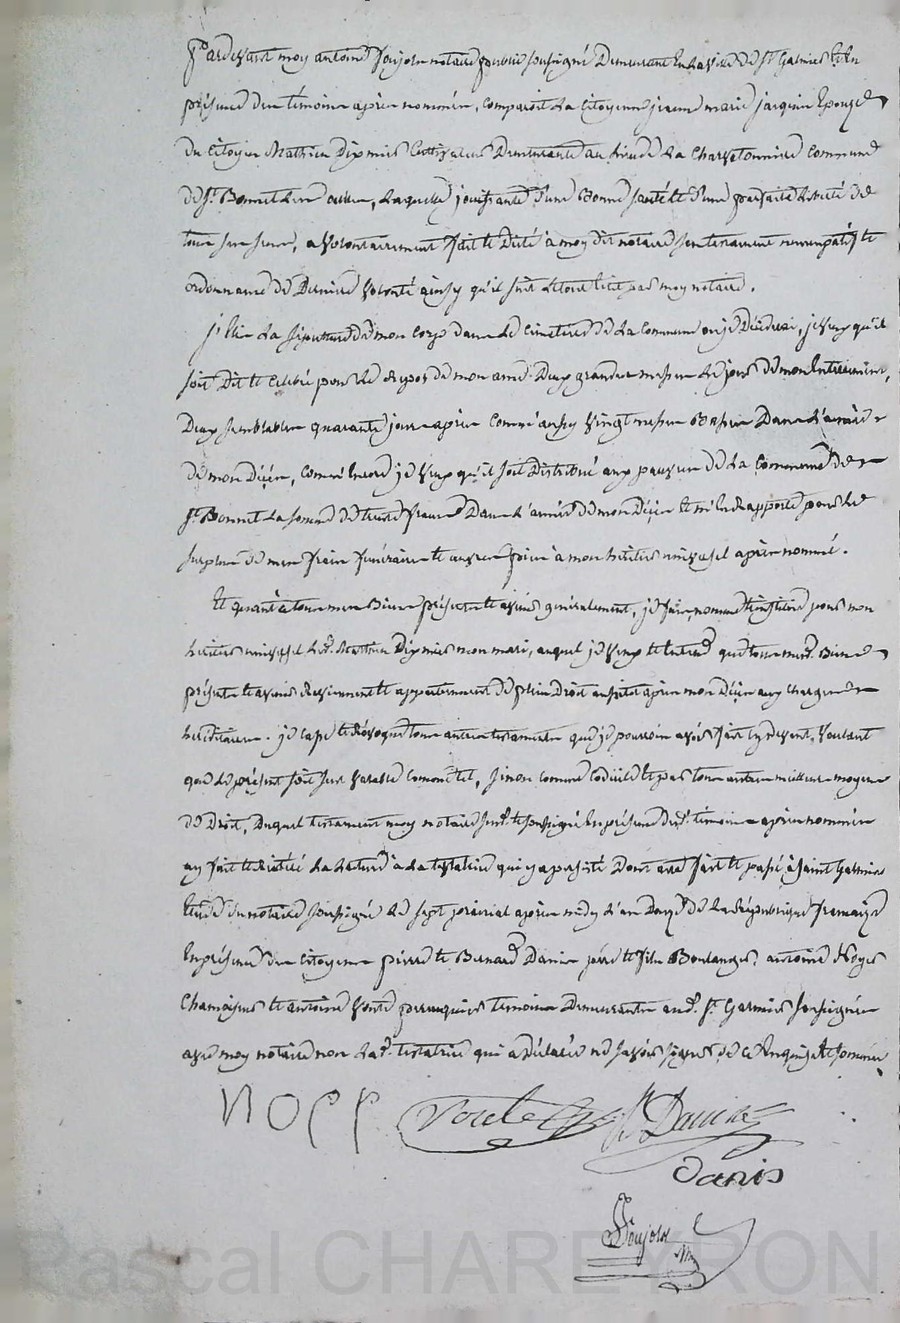 Pardevant moy antoine Poujols notaire public soussigné Demeurant En la ville de St Galmier Et En
présence des témoins après nommés, comparoit La Citoyenne jeanne marie jacquin Epouze
du Citoyen Mathieu Dupuis Cultivateur Demeurante au lieu de La Commune
de St Bonnet Les oulles, Laquelle jouissante d'une Bonne santé Et d'une parfaite Liberté de
tous ses sens, a volontairement fait Et Dicté à moy dit notaire son testament nuncupatif Et
ordonnance de Dernière volonté ainsy qu'il suit Et tout Ecrit par moy notaire.
j'Elis La sépulture de mon corps dans Le Cimetière de La Commune ou je Décéderai, je veux qu'il
soit Dit Et Célébré pour Le Repos de mon ame Deux grandes messes Le jour de mon Enterrement,
Deux semblables quarante jours après Comme aussy vingt messes Basses Dans L'année
de mon Décès, Comme Encore je veux qu'il soit Distribué aux pauvres de La Commune de
St Bonnet La somme de trente francs Dans L'année de mon Décès Et m'En Rapporte pour Le
surplus de mes frais funéraires Et œuvres pies à mon héritier universel après nommé.
Et quant à tous mes Biens présents Et avenir généralement, je fais, nomme Et institue pour mon
héritier universel Led. Mathieu Dupuis mon mari, auquel je veux Et Entend que tous mesd. Biens
présents Et avenir Reviennent Et appartiennent de plein Droit aussitot après mon Décès aux charges
héréditaires. je Casse Et Révoque tous autres testaments que je pourrois avoir fait cy devant, voulant
que Le présent soit seul valable Comme tel, sinon comme Codicile Et par tous autres meilleurs moyens
de Droit, Duquel testament moy notaire susd. Et soussigné En présence desd. témoins après nommés
ay fait Et Réitéré La Lecture à La testatrice qui y a persisté Dont acte fait Et passé à Saint Galmier
Etude du notaire soussigné Le sept prairial après midy L'an de La République française
En présence des Citoyens pierre Et Benard Danis père Et fils Boulangers, antoine
Chamoiseur Et antoine perruquier témoins Demeurants aud. St Galmier soussignés
avec moy notaire non Lad. testatrice qui a Déclaré ne savoir signer de ce Enquise Et sommée
Danis
Danis
Poujols
Pascal CHAREYRON